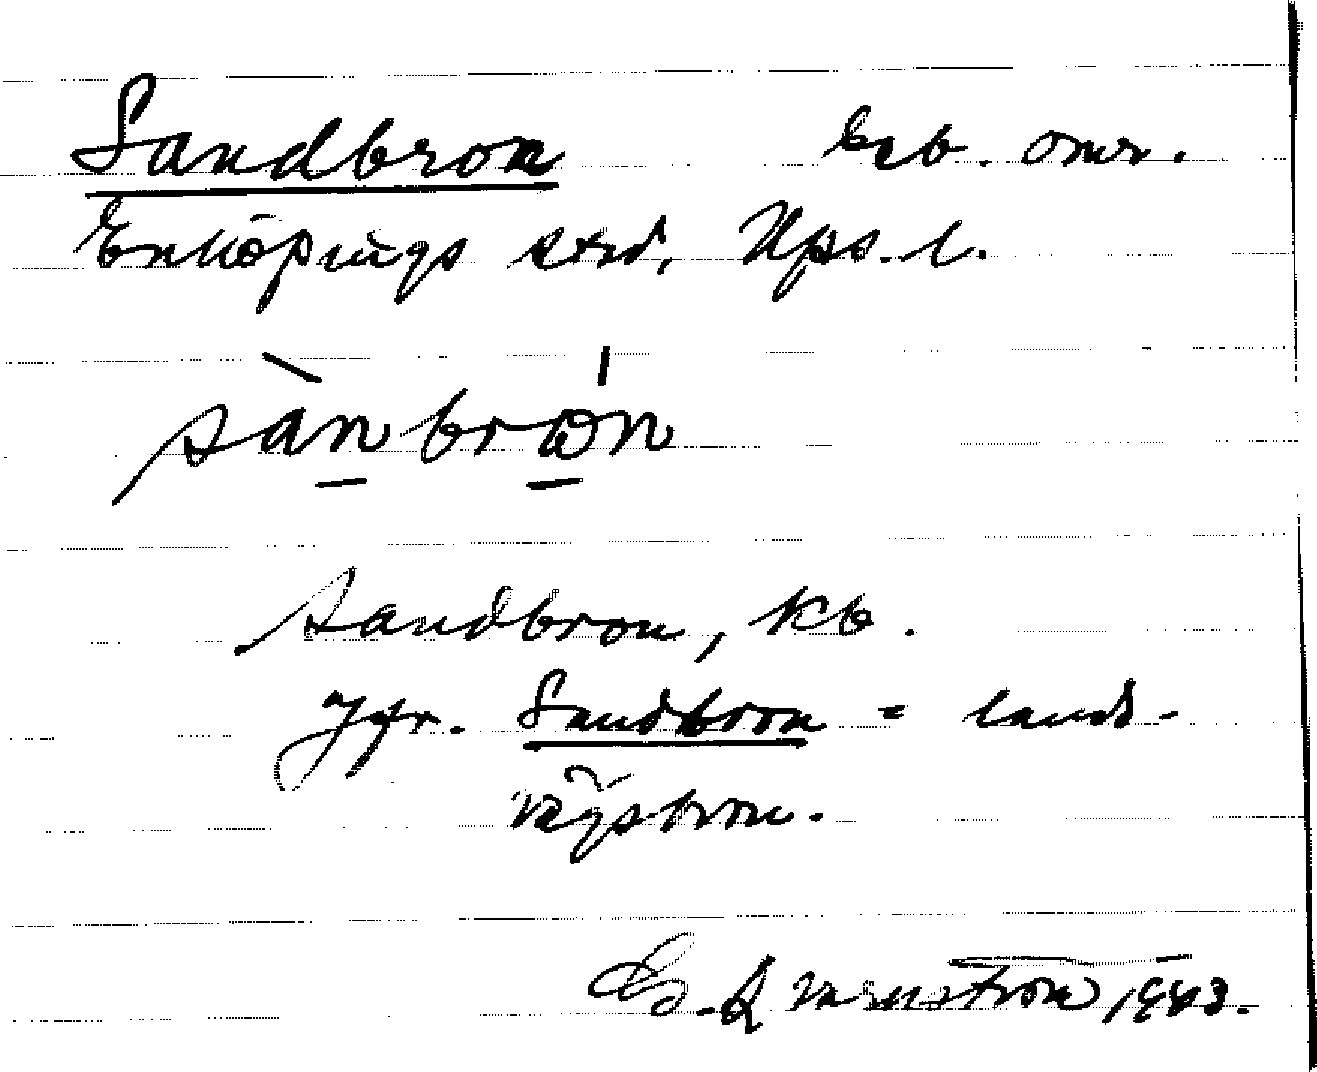 Sandbron beb. omr.
Enköpings stad, Ups. l.
sànbrón
Sandbron, kb.
Jfr. Sandbron = lands-
vägsbron.
1943.